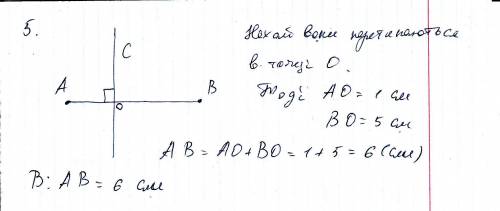 5.
C
A
B
O
Нехай вони перетинаються
в. точці O.
Тоді AO = 1 см
BO = 5 см
AB = AO + BO = 1 + 5 = 6 (см)
В: AB = 6 см